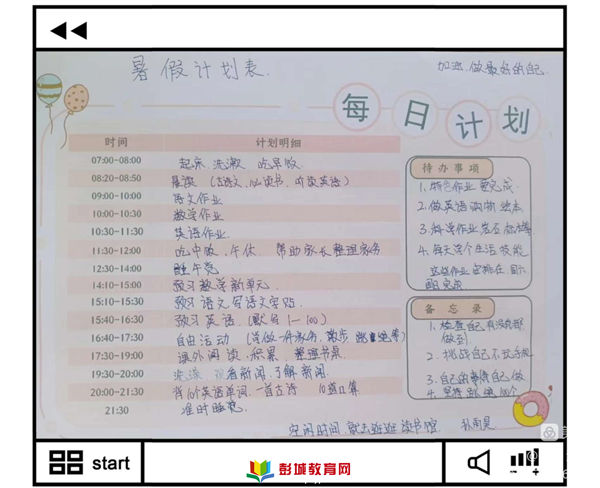 暑假计划表
加油,做最好的自己
每日计划
时间 计划明细
07:00-08:00 起床 洗漱 吃早饭
08:20-08:50 晨读 (古诗文,必读书,听读英语)
09:00-10:00 语文作业
10:00-10:30 数学作业
10:30-11:30 英语作业
11:30-12:00 吃中饭,午休 帮助家长整理家务
12:30-14:00 睡午觉
14:10-15:00 预习数学新单元
15:10-15:30 预习语文写语文字贴
15:40-16:30 预习英语(默写1—100)
16:40-17:30 自由活动 (学做一件家务,散步 跳
17:30-19:00 课外阅读.积累,整理书桌
19:30-20:00 观看新闻.了解新闻
20:00-21:30 背10个英语单词.一首古诗 10道口算
21:30 准时睡觉
待办事项
1.特色作业要完成
2.做英语购物绘本
3.科学作业
4.每天学个生活技能
这些作业安排在周六
周日完成
备忘录
1.检查自己有没有都
做到
2.挑战自己不放弃
3.自己的事情自己做
4.坚持跳绳100个
空闲时间.就去逛逛读书馆
start
彭城教育网